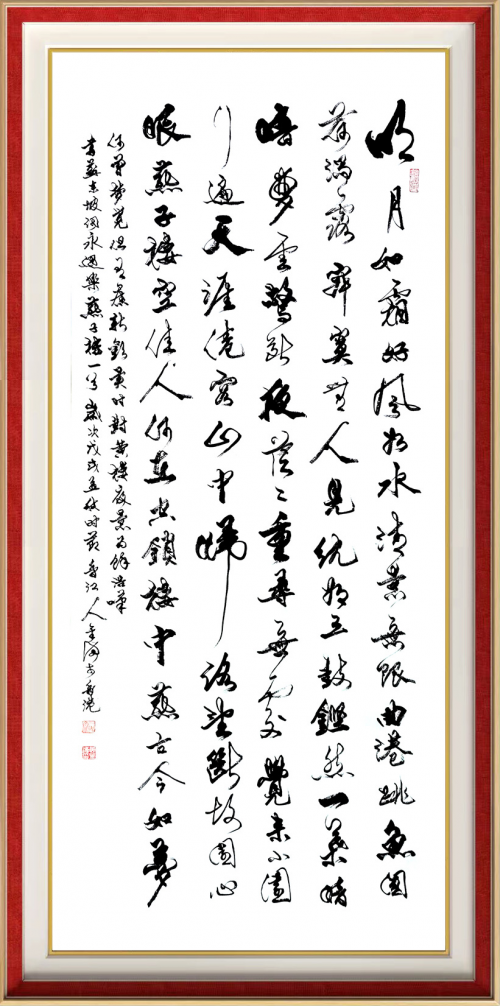 明月如霜好風如水清景無限曲港跳魚圓
荷瀉露寂寞無人見紞如三鼓鏗然一葉暗
暗夢雲驚斷夜茫〻重尋無處覺來小園
行遍天涯倦客山中歸路望斷故園心
眼燕子樓空佳人何在空鎖樓中燕古今如夢
何曾夢覺但有舊歡新怨異時對黃樓夜景為餘浩嘆
書蘇東坡詞永遇樂燕子樓一首歲次戊戌孟秋時節香江人